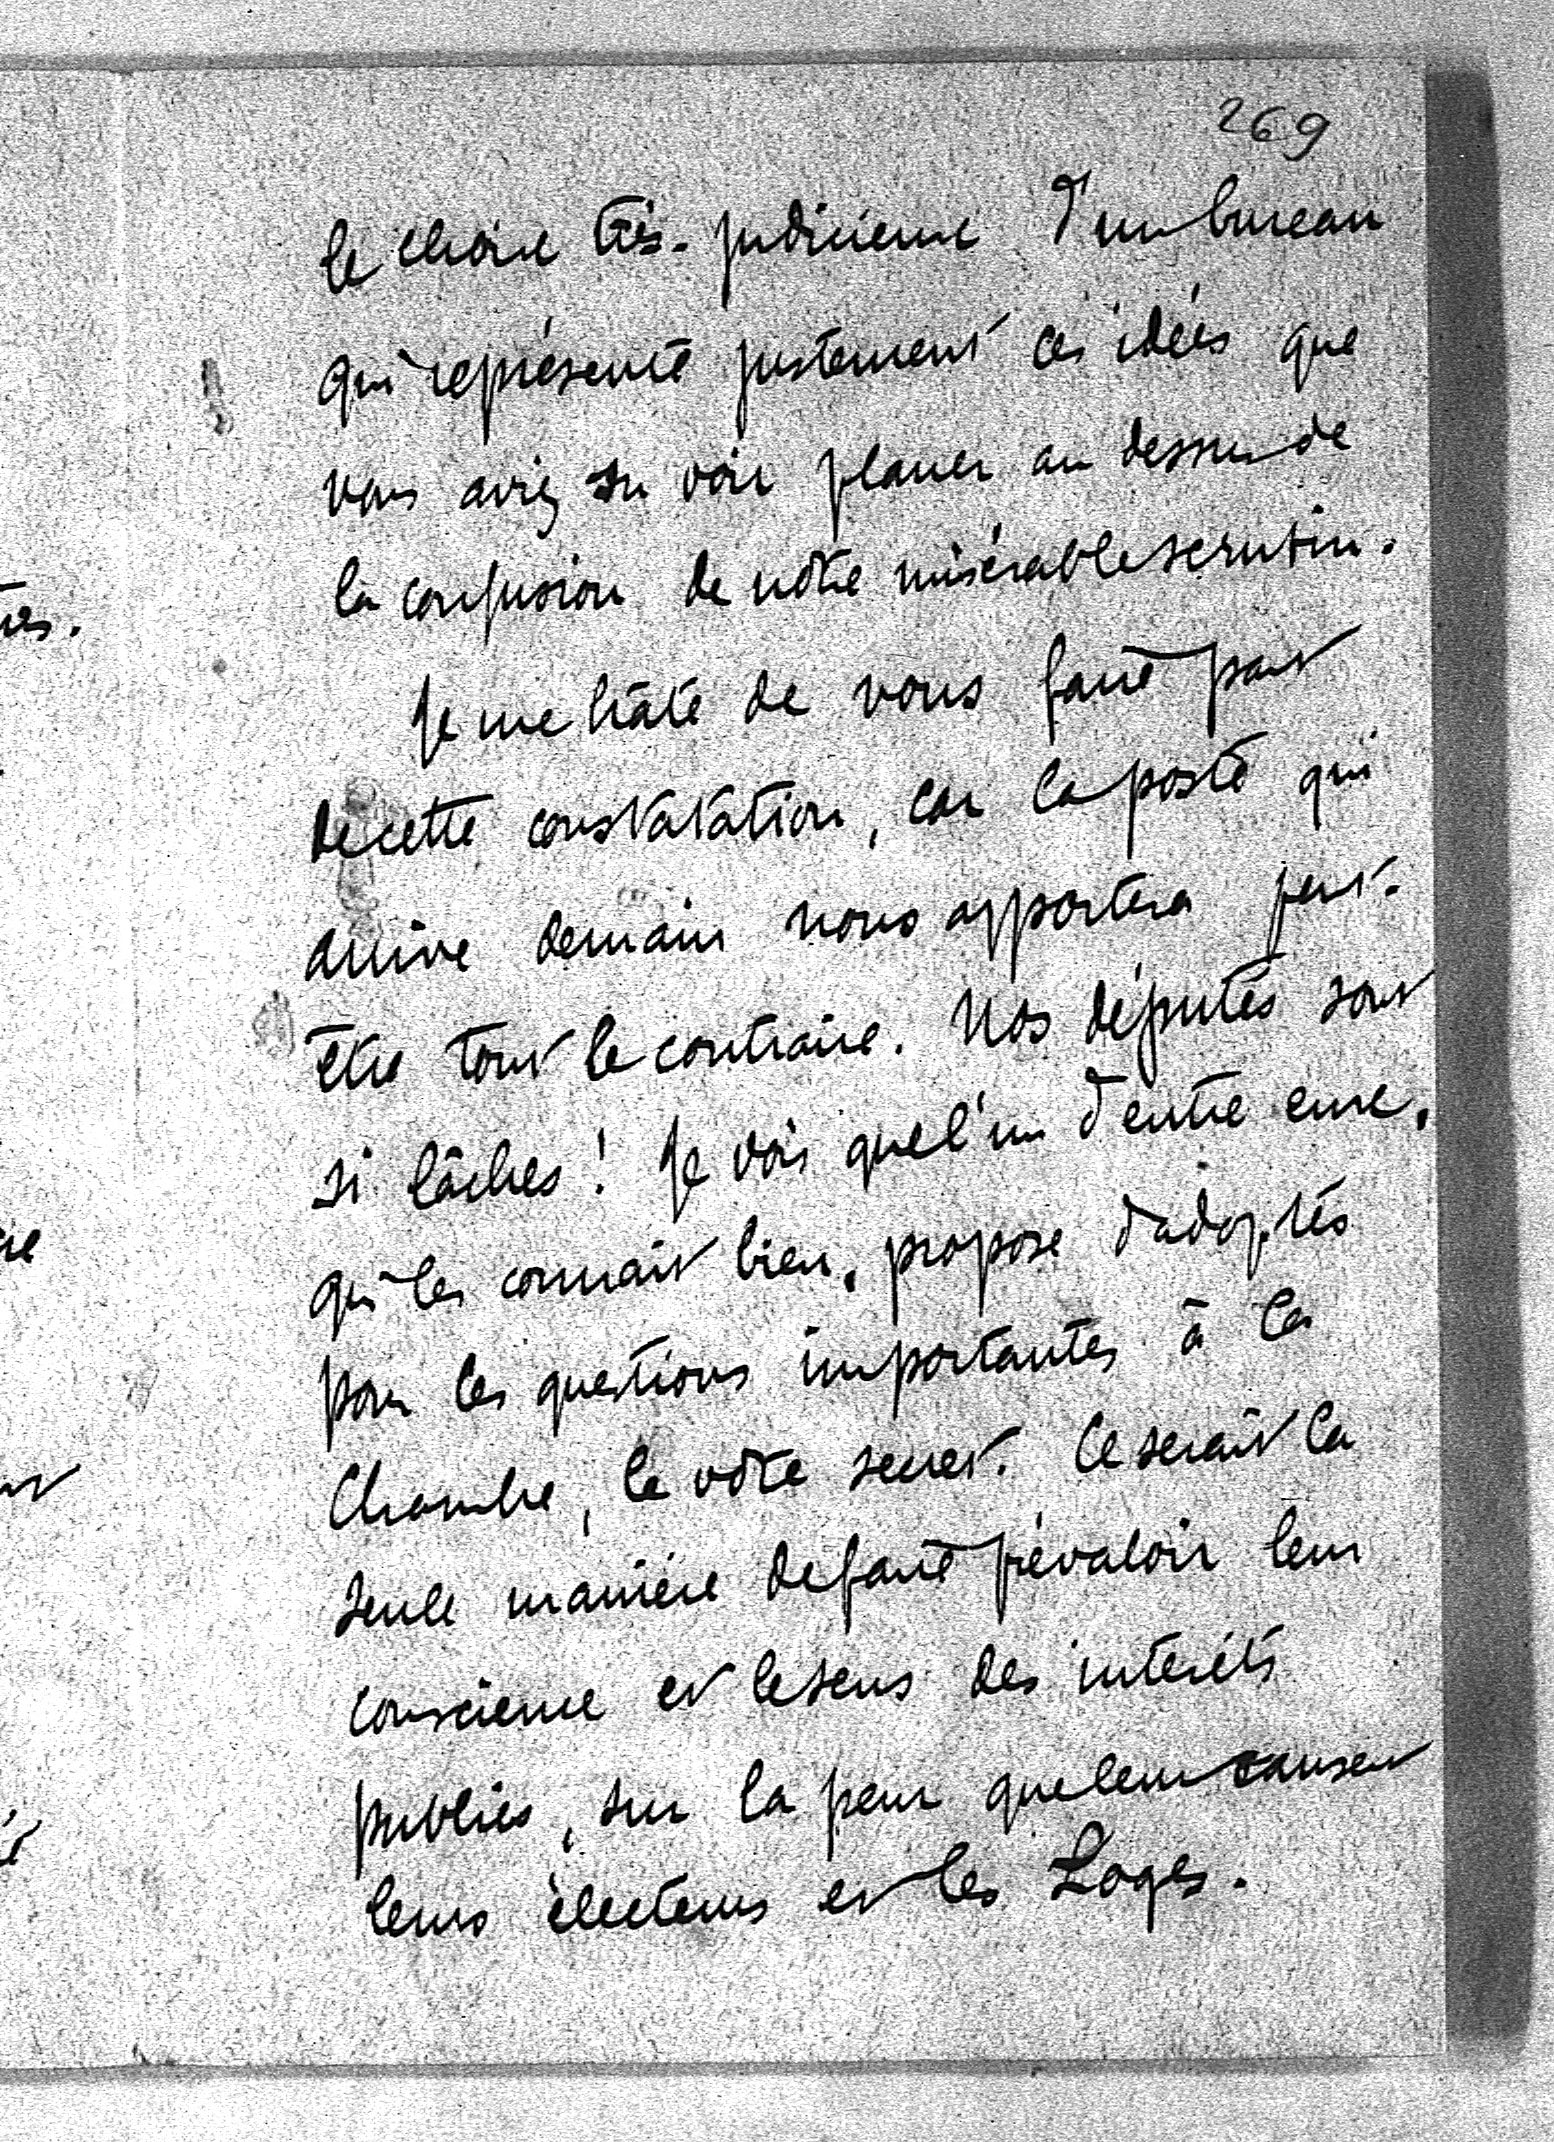 269
le choix très-judicieux d'un bureau
qui représente justement ces idées que
vous aviez su voir planer au dessus de
la confusion de notre misérable scrutin.
Je me hâte de vous faire part
de cette constatation, car la poste qui
arrive demain nous apportera peut-
être tout le contraire. Nos députés sont
si lâches! Je vois que l'un d'entre eux,
qui les connait bien, propose d'adopter
pour les questions importantes à la
Chambre, le vote secret. Ce serait la
seule manière de faire prévaloir leur
conscience et le sens des intérêts
publics, sur la peur que leur causent
leurs électeurs et les Loges.